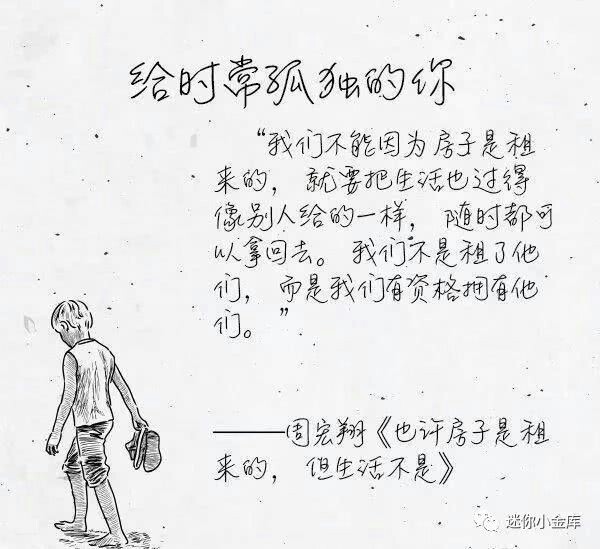 给时常孤独的你
“我们不能因为房子是租
来的，就要把生活也过得
像别人给的一样，随时都可
以拿回去。我们不是租了他
们，而是我们有资格拥有他
们。”
——周宏翔《也许房子是租
来的，但生活不是》
迷你小金库